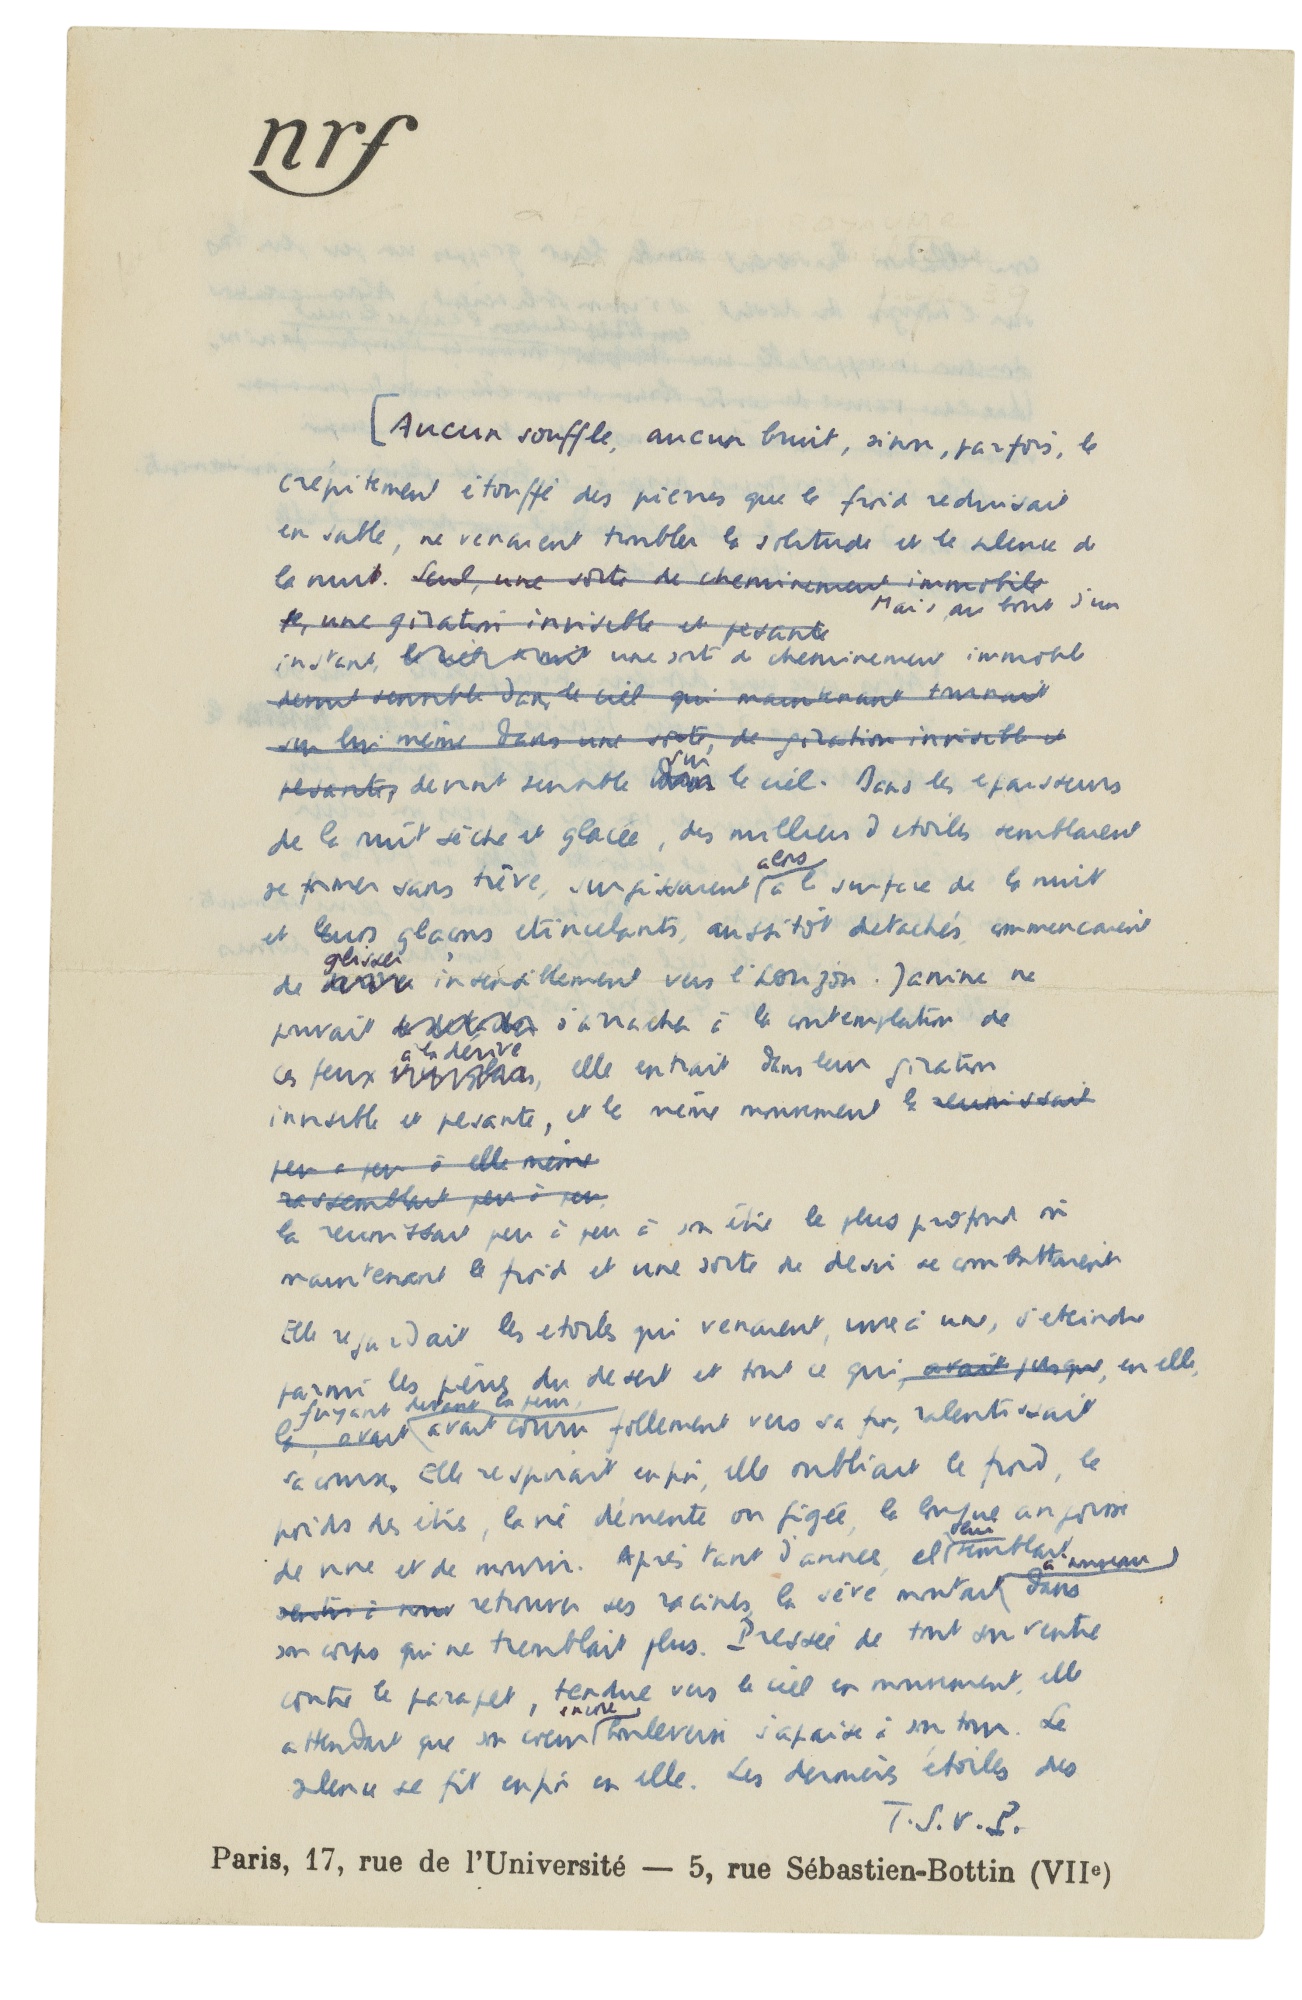 nrf
[Aucun souffle, aucun bruit, sinon, parfois, le
crépitement étouffé des pierres que le froid reduisait
en sable, ne venaient troubler la solitude et le silence de
la nuit. Seul, une sorte de cheminement immobile
une giration invisible et pesante
Mais, au bout d'un
instant, une sorte de cheminement immobile
devint sensible dans le ciel qui maintenant tournait
sur lui même dans une sorte, de giration invisible et
pesante, devint sensible dans le ciel. Dans les epaisseurs
sur
de la nuit sèche et glacée, des milliers d'etoiles semblaient
se former sans trêve, surgissaient à la surface de la nuit
alors
et leurs glaçons etincelants, aussitôt detachés, commencaient
de insensiblement vers l'horizon. Janine ne
glisser
pouvait s'arracher à la contemplation de
ces feux, elle entrait dans leur giration
à la dérive
invisible et pesante, et le même mouvement la reunissait
peu à peu à elle même
rassemblait peu à peu
la reunissait peu à peu à son être le plus profond où
maintenant le froid et une sorte de desir se combattaient
Elle regardait les etoiles qui venaient, une à une, s'eteindre
parmi les pierres du desert et tout ce qui, avait jusque, en elle,
fuyant devant la peur,
la, avait avait couru follement vers sa fin, ralentissait
sa course. Elle respirait enfin, elle oubliait le froid, le
poids des êtres, la vie démente ou figée, la longue angoisse
de vivre et de mourir. Après tant d'annees, el semblait
à nouveau
retrouver ses racines, la sève montait dans
son corps qui ne tremblait plus. Pressée de tout son ventre
contre le parapet, tendue vers le ciel en mouvement, elle
attendait que son coeur bouleversé s'apaise à son tour. Le
encore
silence se fît enfin en elle. Les dernières étoiles des
T.S.V.P.
Paris, 17, rue de l'Université — 5, rue Sébastien-Bottin (VIIᵉ)